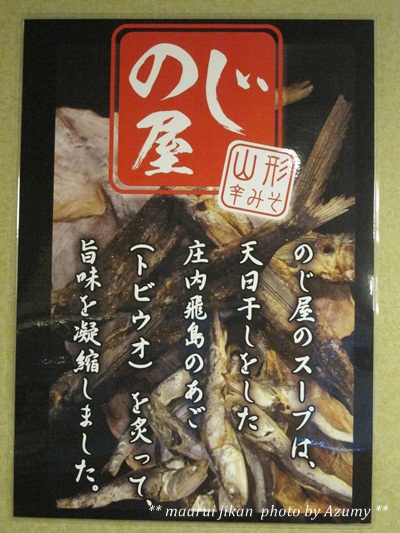 のじ屋
山形
辛みそ
のじ屋のスープは、
天日干しをした
庄内飛島のあご
（トビウオ）を炙って、
旨味を凝縮しました。
** maarui jikan photo by Azumy **